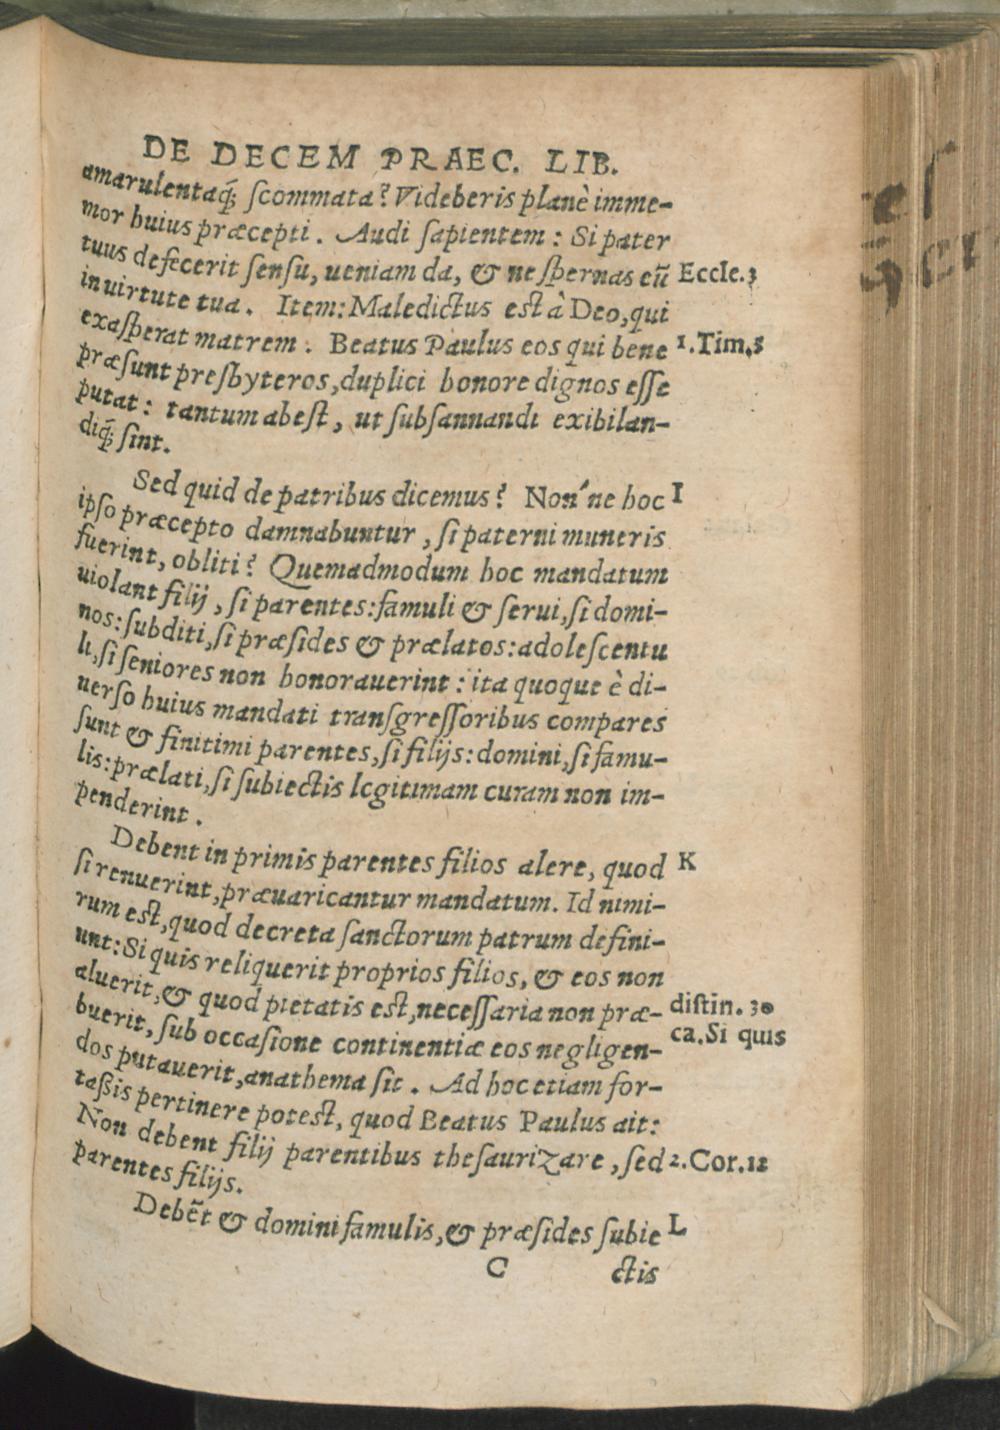 DE DECEM PRAEC. LIB.
amarulentaq́; ſcommata? Videberis planè imme-
mor huius præcepti. Audi ſapientem: Si pater
tuus defecerit ſenſu, ueniam da, & ne ſpernas eū Eccle.3
in uirtute tua. Item: Maledictus est à Deo, qui
exaſperat matrem. Beatus Paulus eos qui bene 1.Tim.5
præſunt presbyteros, duplici honore dignos eſſe
putat: tantum abest, ut ſubſannandi exibilan-
diq́; ſint.
Sed quid de patribus dicemus? Non'ne hoc I
ipſo præcepto damnabuntur, ſi paterni muneris
fuerint, obliti? Quemadmodum hoc mandatum
uiolant filij, ſi parentes: famuli & ſerui, ſi domi-
nos: ſubditi, ſi præſides & prælatos: adoleſcentu
li, ſi ſeniores non honorauerint: ita quoque è di-
uerſo huius mandati tranſgreſſoribus compares
ſunt & finitimi parentes, ſi filijs: domini, ſi famu-
lis: prælati, ſi ſubiectis legitimam curam non im-
penderint.
Debent in primis parentes filios alere, quod K
ſi renuerint, præuaricantur mandatum. Id nimi-
rum est, quod decreta ſanctorum patrum defini-
unt: Si quis reliquerit proprios filios, & eos non
aluerit, & quod pietatis est, neceſſaria non præ- distin. 30
buerit, ſub occaſione continentiæ eos negligen- ca. Si quis
dos putauerit, anathema ſit. Ad hoc etiam for-
taßis pertinere potest, quod Beatus Paulus ait:
Non debent filij parentibus theſaurizare, ſed 2.Cor.12
parentes filijs.
Debēt & domini famulis, & præſides ſubie L
C ctis